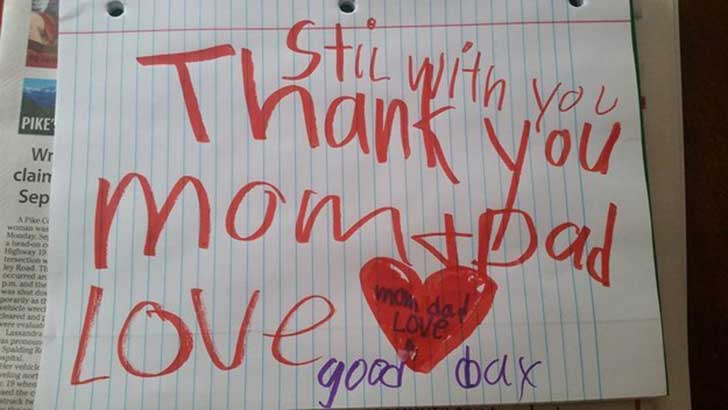 Stil with you
Thank you
mom + Dad
Love
mom dad
LOVE
good bax
PIKE
Wr
claim
Sep
A Pike C
woman was
Monday, Sep
a head-on c
Highway 19
tersection w
ley Road. Th
occurred an
p.m. and the
was shut do
porarily as th
vehicle wrec
cleared and p
were evaluat
Lassandra
as pronoun
Spalding Re
ospital.
Her vehicle
veling nort
y. 19 when
sed the c
struck tw